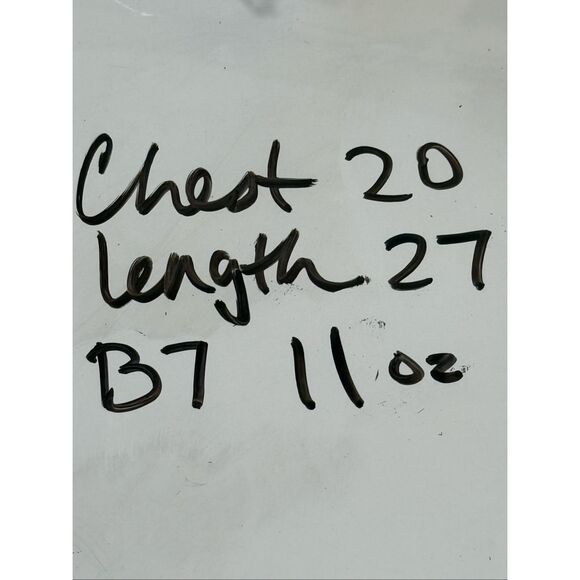 Chest 20
Length 27
B7 11 oz